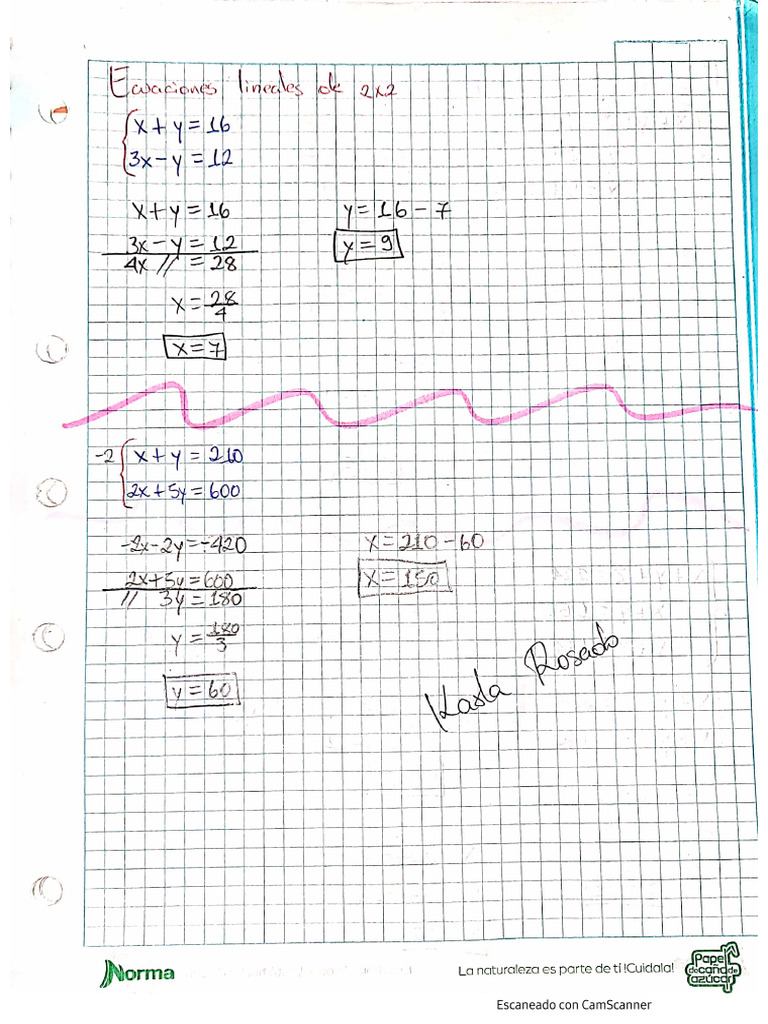 Ecuaciones lineales de 2x2
x + y = 16
3x - y = 12
x + y = 16
3x - y = 12
4x // = 28
x = 28/4
x = 7
y = 16 - 7
y = 9
-2 x + y = 210
2x + 5y = 600
-2x - 2y = -420
2x + 5y = 600
// 3y = 180
y = 180/3
y = 60
x = 210 - 60
x = 150
Karla Rosado
Norma
La naturaleza es parte de ti !Cuidala!
Papel
de caña de
azúcar
Escaneado con CamScanner